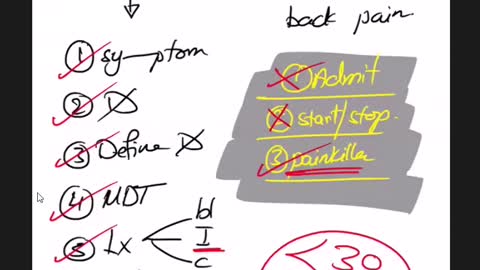 back pain
① symptom
② D
③ Define D
④ MDT
⑤ Ix
bl
I
c
① Admit
② start/stop.
③ painkiller
<30